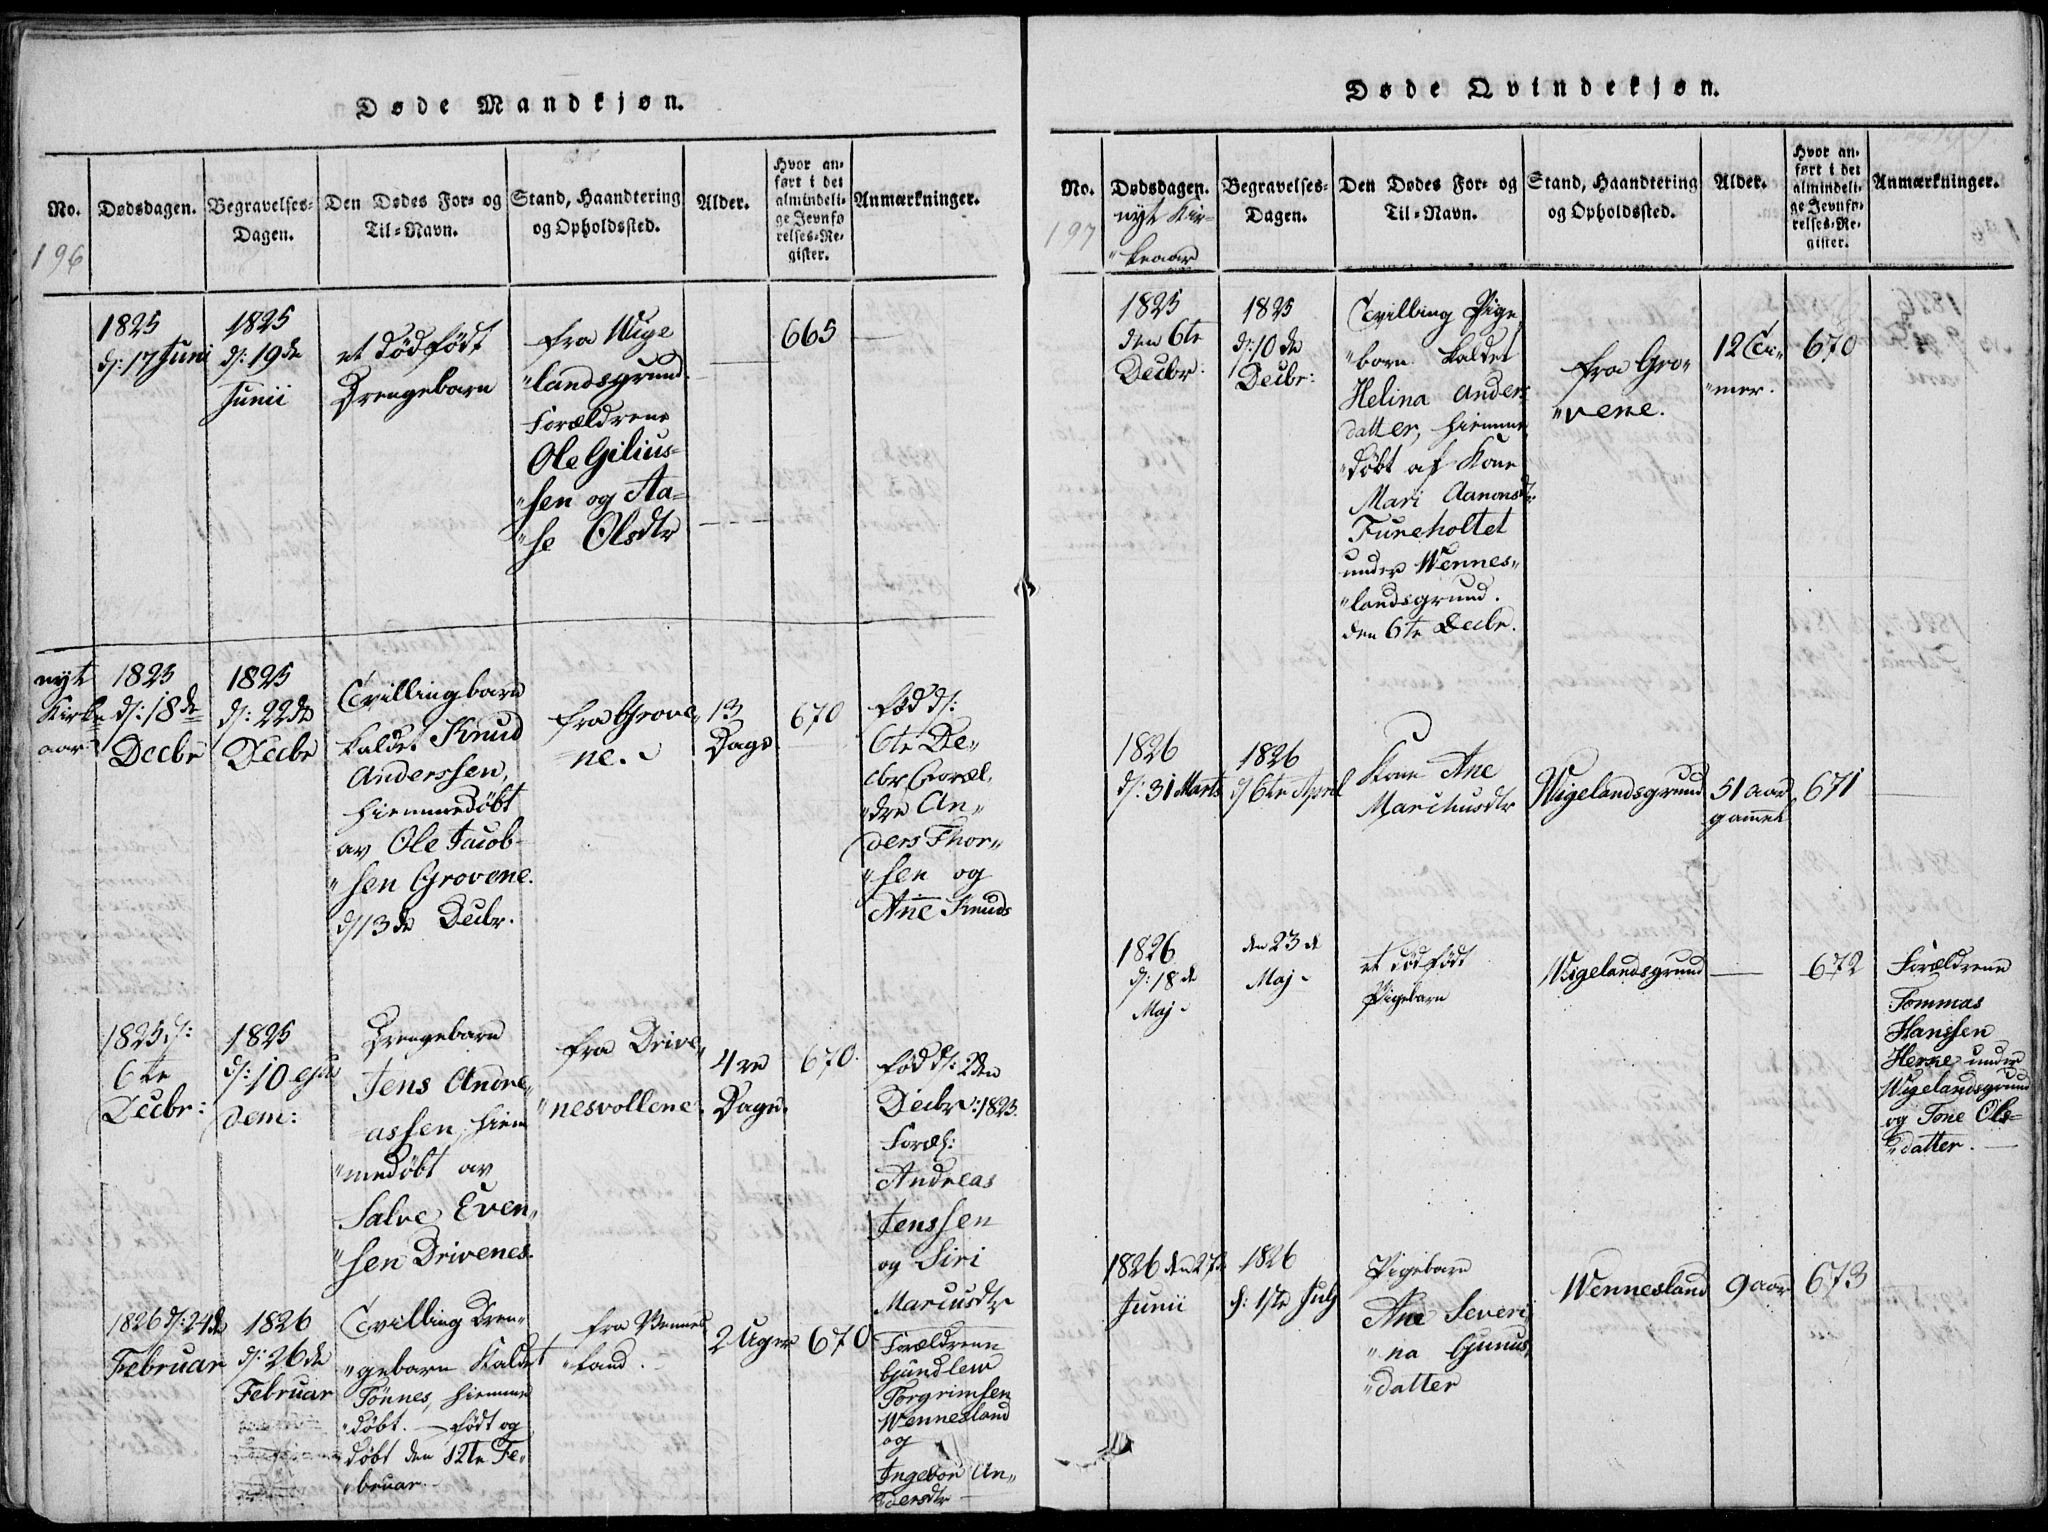 Døde Mandkjøn.
No.
196
Dødsdagen.
Begravelses-
Dagen.
Den Dødes For- og
Til-Navn.
Stand, Haandtering
og Opholdssted.
Alder.
Hvor an-
ført i det
almindeli-
ge Jevnfø
relses-Re-
gister.
Anmærkninger.
1825
d: 17 Juni
1825
d: 19de
Junii
et dødfødt
Drengebarn
fra Wige
"landsgrund
Forældrene
Ole Gilius-
"sen og Aa-
"se Olsdtr
665
nyt
Kirke
aar
1825
d: 18de
Decbr
1825
d: 22de
Decbr
Tvillingbarn
kaldet Knud
Anderssen,
hiemmedøbt
av Ole Jacob-
"sen Grovene.
d 13de Decbr.
fra Grove"
"ne.
13
Dage
670
fød d:
6te De"
cbr Foræl"
"dre An"
ders Thor"
"sen og
Ane Knuds
1825 d:
6te
Decbr:
1825
d: 10 ejus
dem:
Drengebarn
Jens Andre"
assen, hiem
"medøbt av
Salve Even"
"sen Drivenes.
fra Drive"
"nesvollene.
4re
Dage.
670.
fød d: 2den
Decbr: 1825.
Foræl:
Andreas
Jenssen
og Siri
Marcusdtr
1826 d: 24de
Februar
1826
d: 26de
Februar
Tvilling Dren"
"gebarn Kaldet
Tønnes, hiemme
"døbt. - født og
døbt den 12te Fe"
"bruar.
fra Vennes
"land.
2 Uger
670
Forældrene
Gundlew
Torgrimsen
Wennesland
og
Ingebor An"
"dersdtr
Døde Qvindekjøn.
No.
197
Dødsdagen.
nyt Kir-
"keaar
Begravelses-
Dagen.
Den Dødes For- og
Til-Navn.
Stand, Haandtering
og Opholdssted.
Alder.
Hvor an-
ført i det
almindeli-
ge Jevnfø-
relses-Re-
gister.
Anmærkninger.
1825
den 6te
Decbr:
1825
d: 10de
Decbr:
Tvilling Pige
"born kaldet
Helina Anders
datter, hiemme
"døbt af Kone
Mari Aanonsdtr
Fureholtet
under Wennes"
"landsgrund.
den 6te Decbr.
fra Gro"
"vene.
12 Ti"
"mer.
670
1826
d: 31 Marts
1826
d 6te April
Kone Ane
Marchusdtr
Wigelandsgrund
51 aar
gammel
671
1826
d: 18de
Maj
den 23de
Maj
et dødfødt
Pigebarn
Wigelandsgrund
672
Forældrene
Tommas
Hanssen
Herre under
Wigelandsgrund
og Tone Ols-
"datter.
1826 den 27de
Junii
1826
d: 1ste July
Pigebarn
Ane Severi
"na Gunus
"datter
Wennesland
9 aar
673